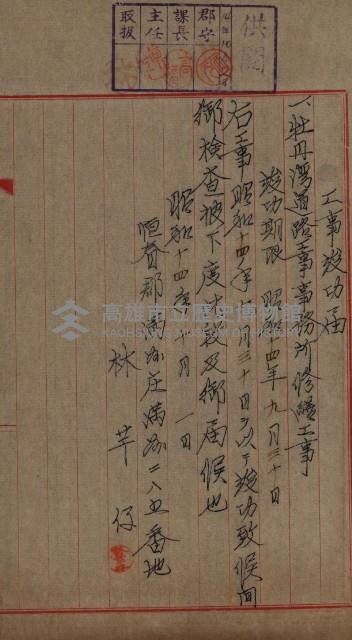 供閲
郡守
課長
主任
取扱
工事竣功届
一、牡丹湾道路工事事務所修繕工事
竣功期限 昭和十四年九月三十日
右工事昭和十四年九月三十日ヲ以テ竣功致候間
御検査被下度此段及御届候也
昭和十四年十月一日
恒春郡満州庄満州二八五番地
林芋仔
高雄市立歷史博物館
KAOHSIUNG MUSEUM OF HISTORY